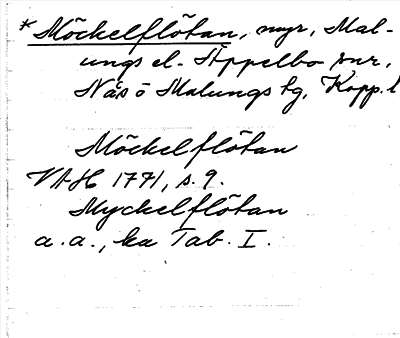 *Möckelflötan, myr, Mal-
ungs el. Äppelbo snr,
Nås o Malungs tg, Kopp. l
Möckelflötan
VAH 1771, s. 9.
Myckelflötan
a.a., ka Tab. I.